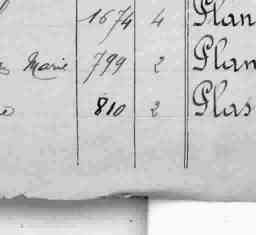 1674 4 Plan
Marie 799 2 Plan
810 2 Plas